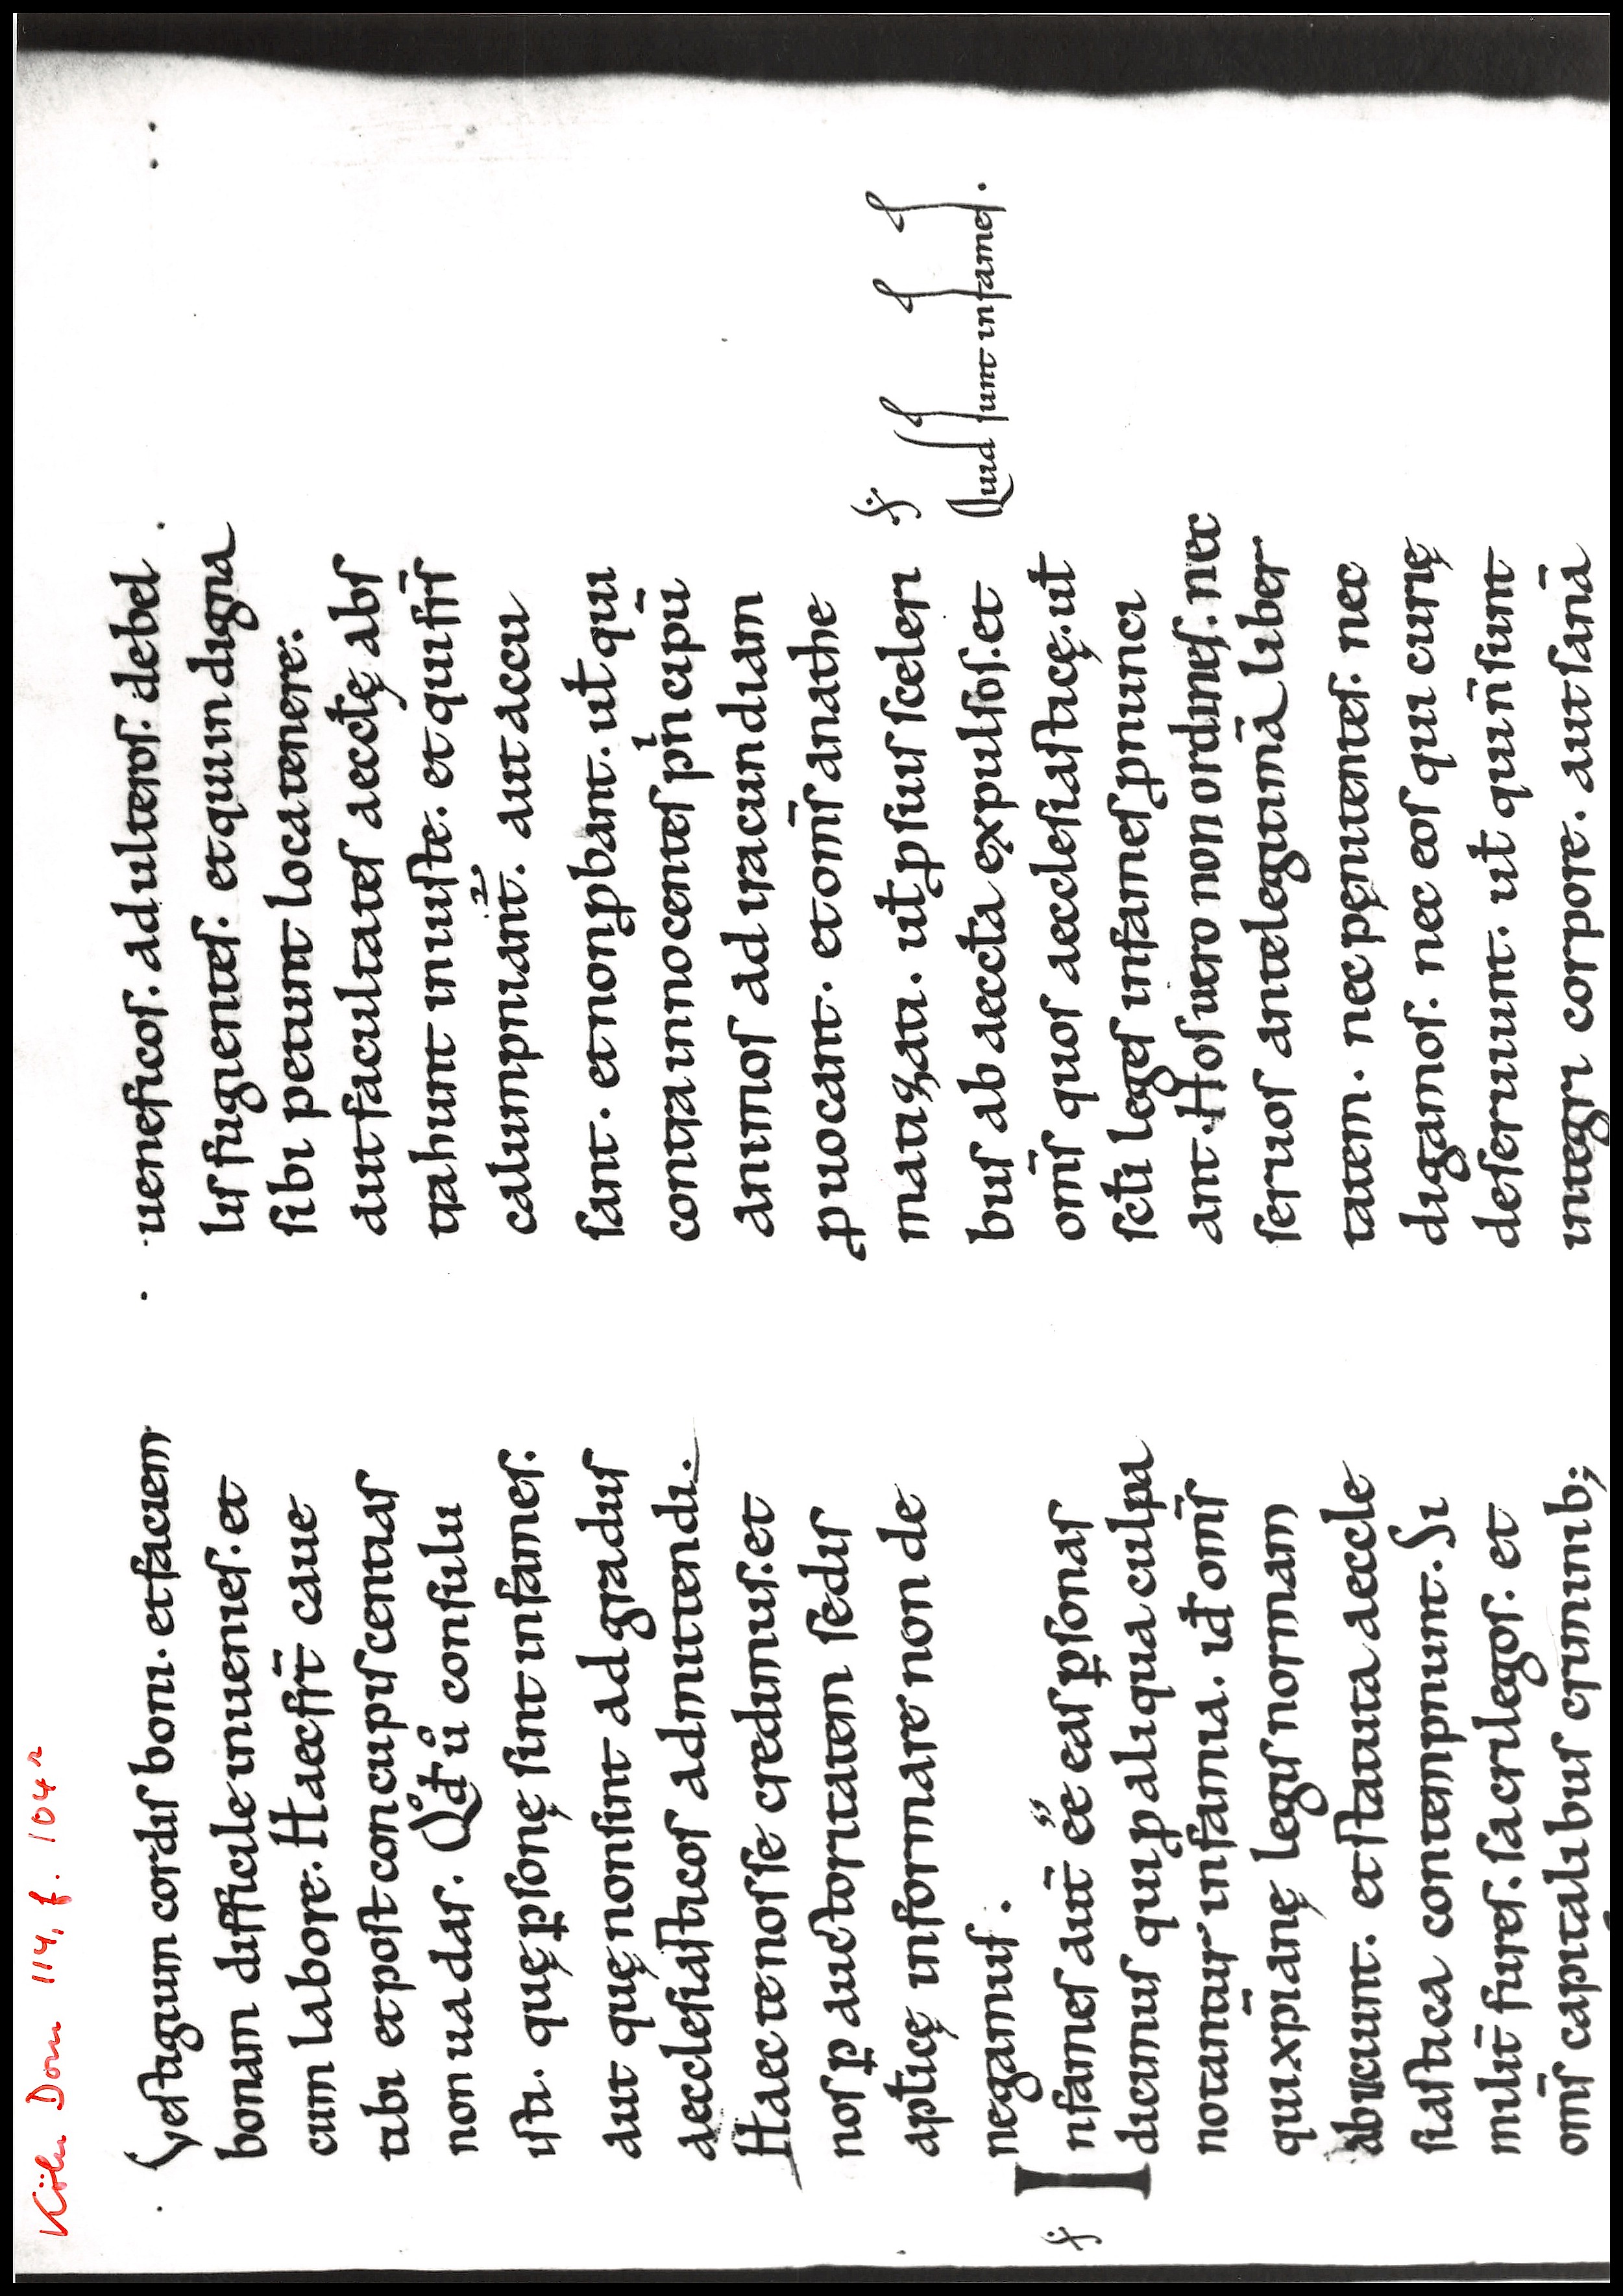 Köln Dom 114, f. 104r
Veſtigium cordiſ boni. et faciem
bonam difficile inuenieſ. et
cum labore. Haec frī caue
tabi et poſt concupiſcentiaſ
non uadaſ. Qđ ů conſulu
iſti. quę ꝑſonę ſint infameſ.
aut quę non ſint ad graduſ
aeccleſiaſticoſ admittendi.
Haec te noſſe credimuſ. et
noſ ꝑ auctoritatem ſediſ
apticę informare non de
negamuſ.
Infameſ aut̄ eē eaſ ꝑſonaſ
dicimuſ qui ꝑ aliqua culpa
notant̄ur infamia. id̄ om̄ſ
qui xpianę legiſ normam
abiciunt. et ſtatuta aeccle
ſiaſtica contempnunt. Si
milit̄ fureſ. ſacrilegoſ. et
om̄ſ capitalibuſ criminib;
ueneficoſ. adulteroſ. de bel
liſ fugienteſ. et qui indigna
ſibi petunt loca tenere.
aut facultateſ aeccłę abſ
trahunt iniuſte. et qui fr̄ſ
calumpniant̄. aut accu
ſant. et non ꝓbant. ut̄ qui
contra innocenteſ pͥncipū
animoſ ad iracundiam
ꝓuocant. et om̄ſ anathe
matizati. ut̄ ꝓ ſuiſ ſceleri
buſ ab aeccła expulſoſ. et
om̄ſ quoſ aeccleſiaſticę. ut̄
ſcłi legeſ infameſ ꝓnunci
ant. Hoſ uero non ordineſ. nec
ſeruoſ ante legitimā liber
tatem. nec pęnitenteſ. nec
digamoſ. nec eoſ qui curię
deſeruiunt. ut̄ qui n̄ ſunt
integri corpore. aut ſanā
Quid ſunt infameſ.